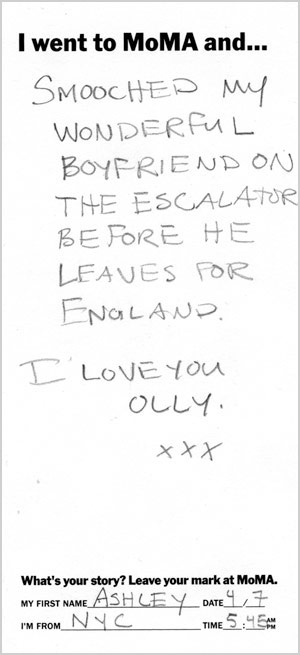 I went to MoMA and...
SMOOCHED MY
WONDERFUL
BOYFRIEND ON
THE ESCALATOR
BEFORE HE
LEAVES FOR
ENGLAND.
I LOVE YOU
OLLY.
xxx
What's your story? Leave your mark at MoMA.
MY FIRST NAME ASHLEY DATE 4/7
I'M FROM NYC TIME 5:45 AM PM